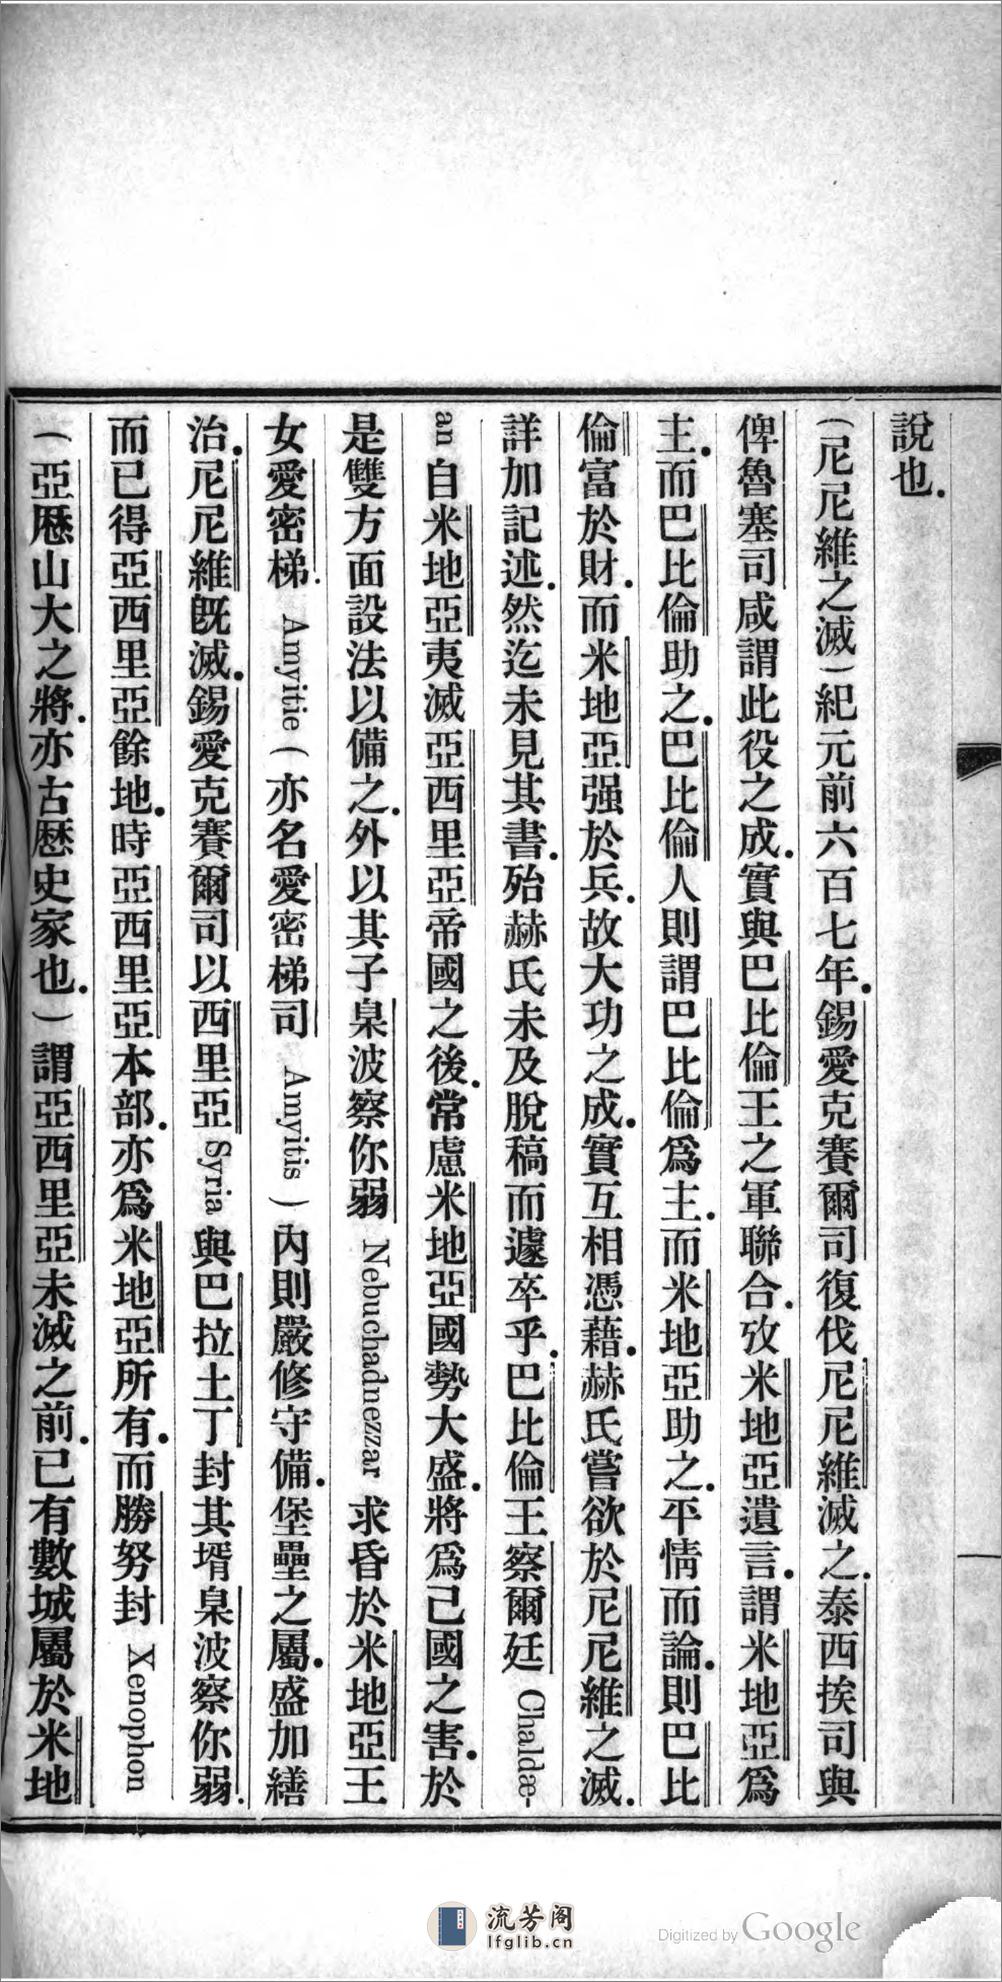 說也.
(尼尼維之滅)紀元前六百七年.錫愛克賽爾司復伐尼尼維滅之.泰西挨司與
俾魯塞司咸謂此役之成.實與巴比倫王之軍聯合.攷米地亞遺言.謂米地亞爲
主.而巴比倫助之.巴比倫人則謂巴比倫爲主.而米地亞助之.平情而論.則巴比
倫富於財.而米地亞强於兵.故大功之成.實互相憑藉.赫氏嘗欲於尼尼維之滅.
詳加記述.然迄未見其書.殆赫氏未及脫稿而遽卒乎.巴比倫王察爾廷 Chaldæ-
an 自米地亞夷滅亞西里亞帝國之後.常慮米地亞國勢大盛.將爲己國之害.於
是雙方面設法以備之.外以其子臬波察你弱 Nebuchadnezzar 求昏於米地亞王
女愛密梯. Amyitie(亦名愛密梯司 Amyitis)內則嚴修守備.堡壘之屬.盛加繕
治.尼尼維旣滅.錫愛克賽爾司以西里亞 Syria 與巴拉土丁封其壻臬波察你弱.
而已得亞西里亞餘地.時亞西里亞本部.亦爲米地亞所有.而勝努封 Xenophon
(亞歷山大之將.亦古歷史家也.)謂亞西里亞未滅之前.已有數城屬於米地
流芳阁
lfglib.cn
Digitized by Google